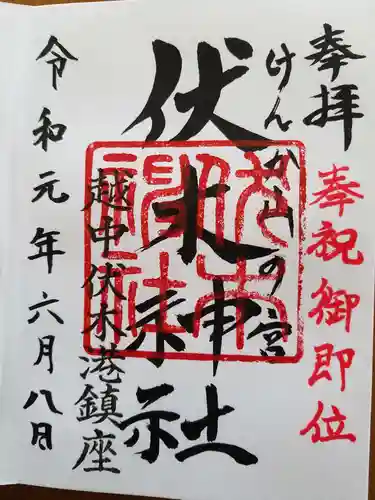 奉拝
奉祝御即位
けんか山の宮
伏木神社
越中伏木港鎮座
令和元年六月八日
伏木神社